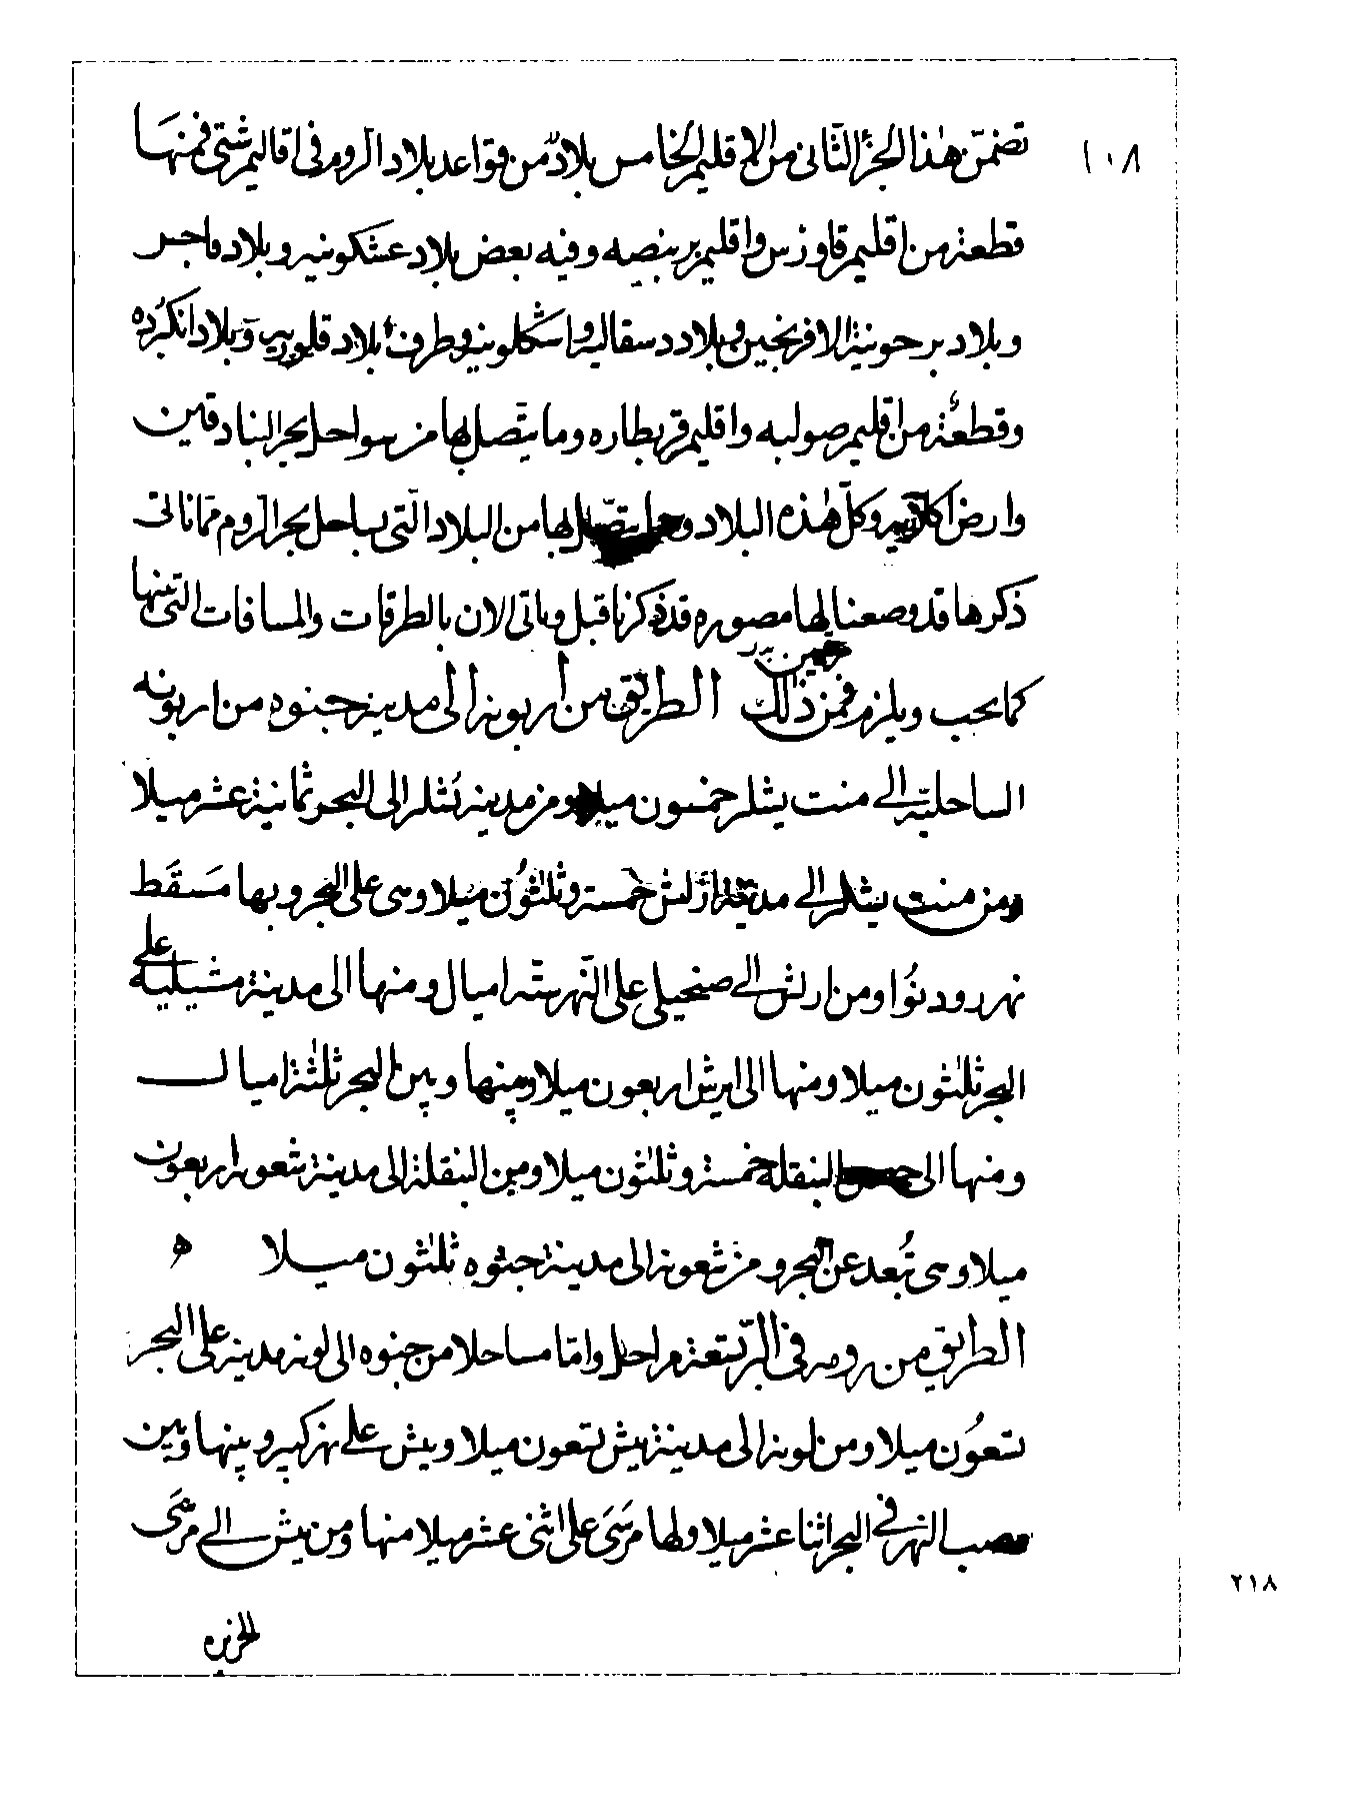 ١٠٨
تضمّن هٰذا الجزء الثّانى من الاقليم الخامس بلادٌ من قواعد بلاد الروم فى اقاليم شتى فمنها
قطعة من اقليم قاوزس واقليم بربنصيه وفيه بعض بلاد عشكونيه وبلاد
وبلاد برحونية الافرنجين وبلاد دسقاليه واشكلونيه وطرف بلاد قلوريه وبلاد انكبرده
وقطعة من اقليم صولبه واقليم قربطاره وما يتّصل بها من سواحل بحر البنادقين
وارض اكلايه وكلّ هٰذه البلاد وما يتصّل بها من البلاد الّتى بساحل بحر الروم ممّا ناتى
ذكرها قد وصعنالها مصوره قد ذكرنا قبل وناتى الان بالطرقات والمسافات التى بينها
كما يجب ويلزم فمن ذالك الطريق من اربونة الى مدينة جنوه من اربونه
الساحليّة الى منت بشلر خمسون ميلا ومن مدينة بشلر الى البحر ثمانية عشر ميلا
ومن منت بشلر الى مدينة ارلش خمسة وثلثون ميلا وهى على البحر وبها مسقط
نهر رودنوا ومن ارلش الى صنجيلى على النّهر ستّة اميال ومنها الى مدينة مشيليه على
البحر ثلٰثون ميلا ومنها الى ايرش اربعون ميلا وبينها وبين البحر ثلٰثة اميال
ومنها الى البنقلة خمسة وثلٰثون ميلا ومن البنقلة الى مدينة شعونه اربعون
ميلا وهى تبعد عن البحر ومن شعونة الى مدينة جنوه ثلٰثون ميلا ه
الطريق من رومه فى البرّ تسعة مراحل وامّا مساحلا من جنوه الى لونه مدينة على البحر
تسعون ميلا ومن لونة الى مدينة بيش تسعون ميلا وبيش على نهر كبير وبينها وبين
مصب النهر فى البحر اثنا عشر ميلا ولها مرسى على اثنى عشر ميلا منها ومن بيش الى مرسى
الجزيره
٢١٨